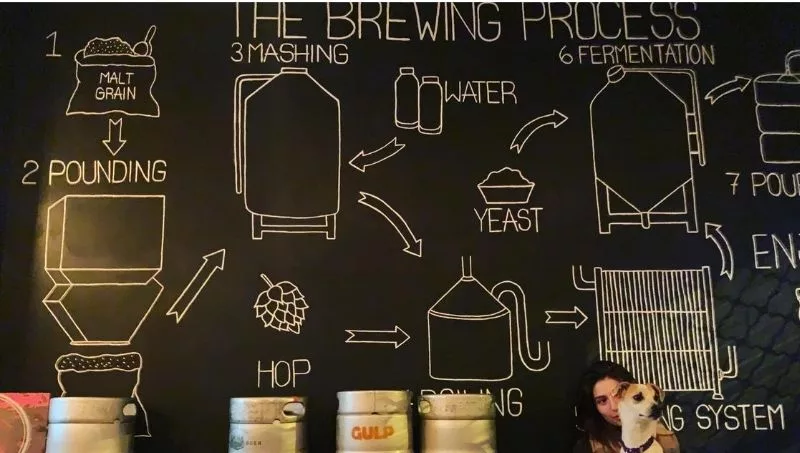 THE BREWING PROCESS
1
MALT
GRAIN
2 POUNDING
3 MASHING
WATER
HOP
6 FERMENTATION
YEAST
7
EN
SYSTEM
GULP